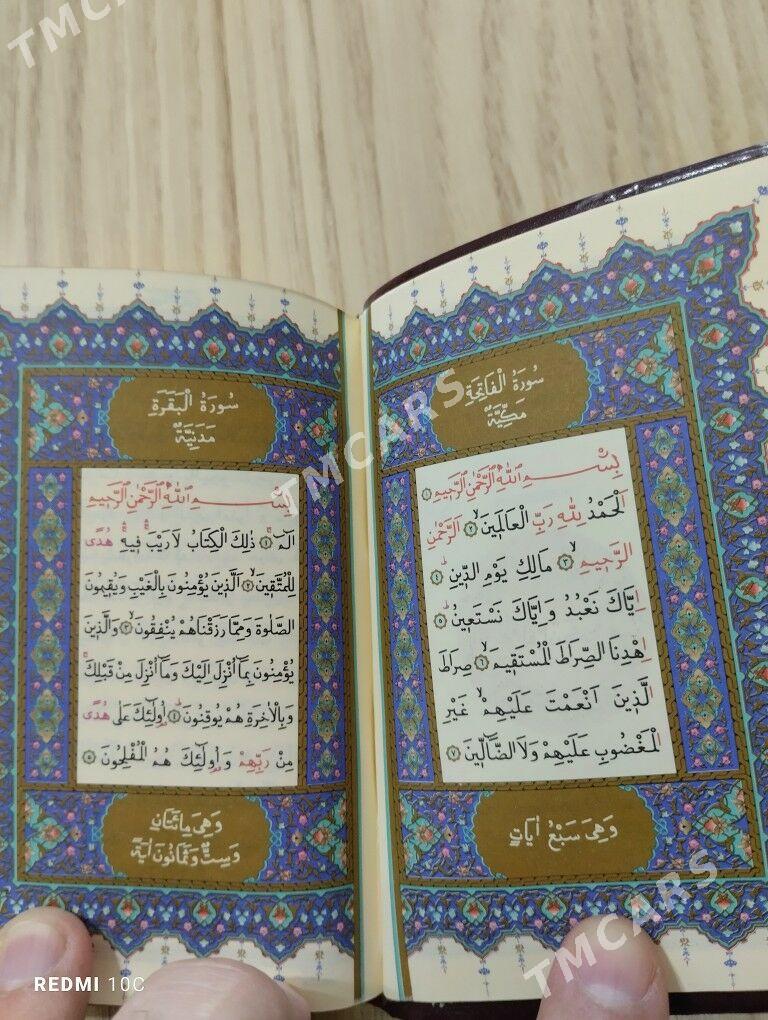 سُورَةُ الْفَاتِحَةِ
مَكِّيَّةٌ
بِسْمِ اللّٰهِ الرَّحْمٰنِ الرَّحِيمِ ١
اَلْحَمْدُ لِلّٰهِ رَبِّ الْعَالَمِينَ ٢ اَلرَّحْمٰنِ
الرَّحِيمِ ٣ مَالِكِ يَوْمِ الدِّينِ ٤
اِيَّاكَ نَعْبُدُ وَاِيَّاكَ نَسْتَعِينُ ٥
اِهْدِنَا الصِّرَاطَ الْمُسْتَقِيمَ ٦ صِرَاطَ
الَّذِينَ اَنْعَمْتَ عَلَيْهِمْ غَيْرِ
الْمَغْضُوبِ عَلَيْهِمْ وَلَا الضَّالِّينَ ٧
وَهِيَ سَبْعُ اٰيَاتٍ
سُورَةُ الْبَقَرَةِ
مَدَنِيَّةٌ
بِسْمِ اللّٰهِ الرَّحْمٰنِ الرَّحِيمِ
الٓمٓ ١ ذٰلِكَ الْكِتَابُ لَا رَيْبَ فِيهِ هُدًى
لِلْمُتَّقِينَ ٢ اَلَّذِينَ يُؤْمِنُونَ بِالْغَيْبِ وَيُقِيمُونَ
الصَّلٰوةَ وَمِمَّا رَزَقْنَاهُمْ يُنْفِقُونَ ٣ وَالَّذِينَ
يُؤْمِنُونَ بِمَٓا اُنْزِلَ اِلَيْكَ وَمَٓا اُنْزِلَ مِنْ قَبْلِكَ
وَبِالْاٰخِرَةِ هُمْ يُوقِنُونَ ٤ اُو۬لٰٓئِكَ عَلٰى هُدًى
مِنْ رَبِّهِمْ وَاُو۬لٰٓئِكَ هُمُ الْمُفْلِحُونَ ٥
وَهِيَ مِائَتَانِ
وَسِتٌّ وَثَمَانُونَ اٰيَةً
TMCARS
TMCARS
TMCARS
REDMI 10C